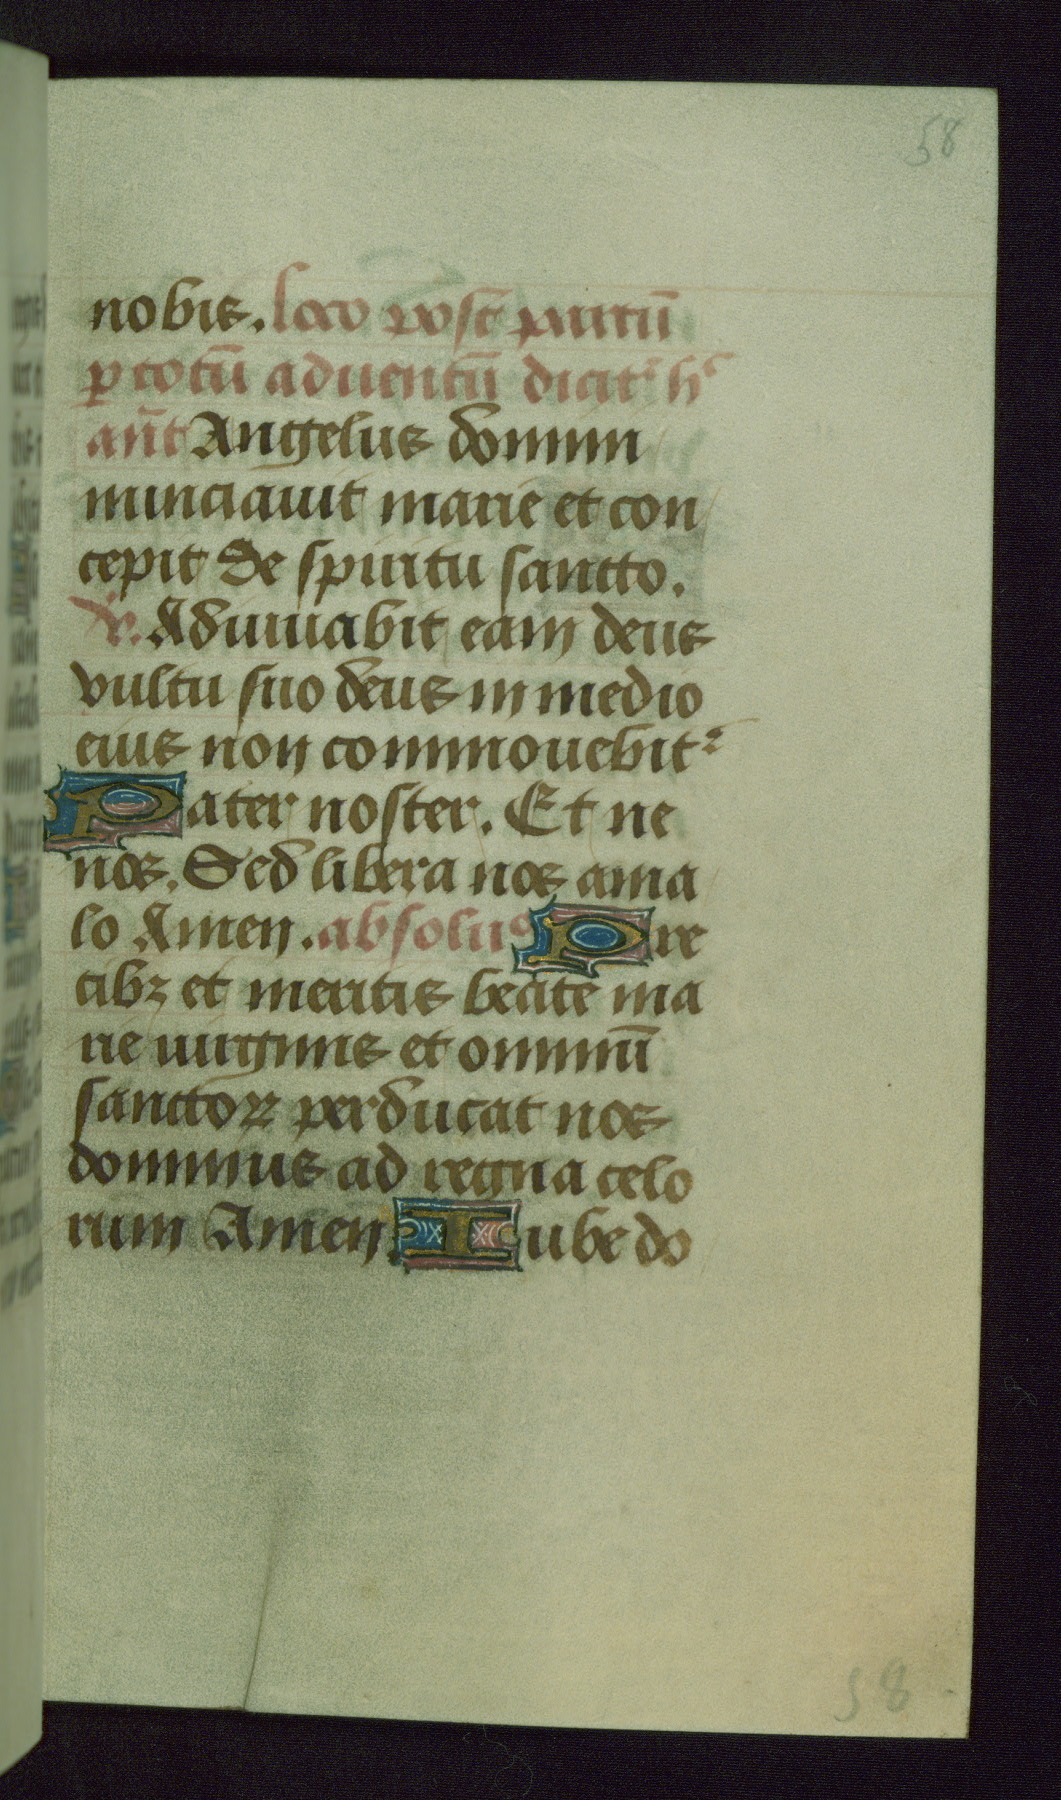 58
nobis. loco post partū
ꝑ totū aduentū dicit᷑ hͨ
añt Angelus domini
nunciauit marie et con
cepit de spiritu sanctto.
v. Adiuuabit eam deus
vultu suo deus in medio
eius non commouebit᷑
Pater noster. Et ne
nos. Sed libera nos ama
lo Amen. absoluꝰ Pre
cibꝫ et meritis beate ma
rie uirginis et omniuī
sanctoꝝ perducat nos
dominus ad regna celo
rum Amen. Iube do
58